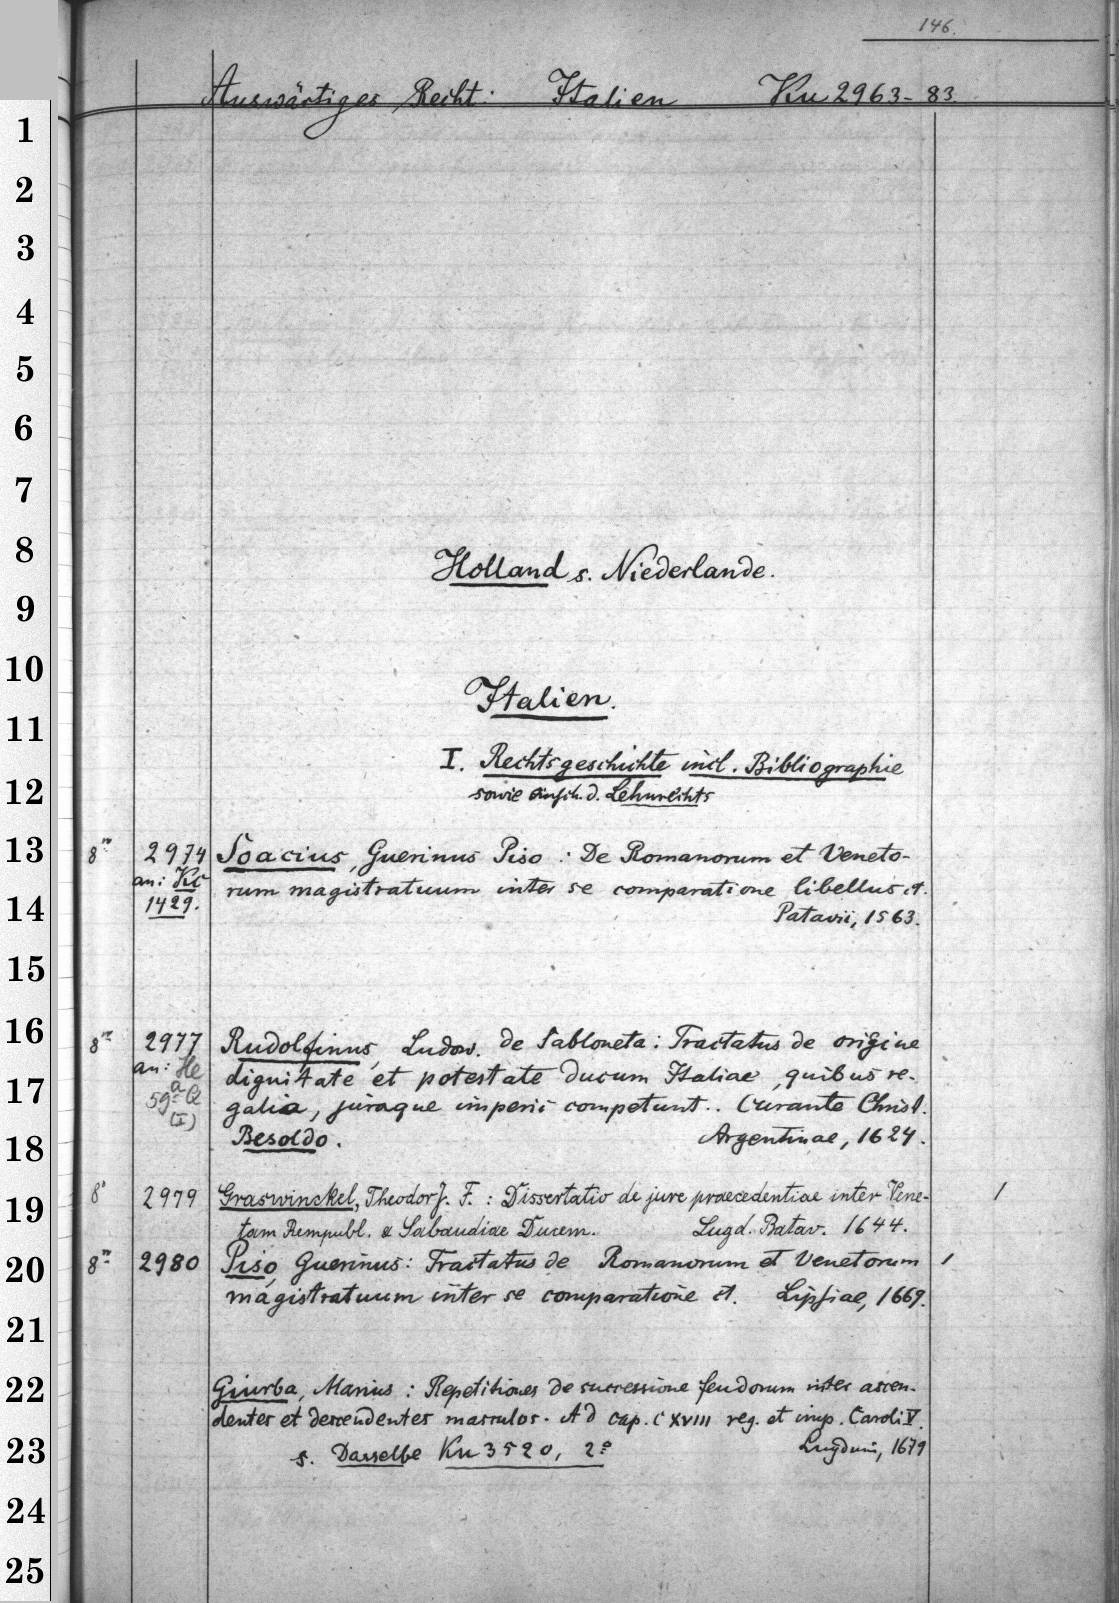 146.
Auswärtiges Recht: Italien Ku 2963-83.
1
2
3
4
5
6
7
8
Holland s. Niederlande.
9
10
Italien.
11
I. Rechtsgeschichte incl. Bibliographie
12
sowie einsch. d. Lehnrechts
13 8° 2974 Soacius, Guerinus Piso: De Romanorum et Veneto-
an: Kc rum magistratuum inter se comparatione libellus et.
14 1429. Patavii, 1563.
15
16 8° 2977 Rudolfinus, Ludow. de Sabloneta: Tractatus de origine
an: He dignitate et potestate ducum Italiae, quibus re-
17 59a galia, juraque imperii competunt.. Curante Christ.
(I)
18 Besoldo. Argentinae, 1624.
19 8° 2979 Graswinckel, Theodor J. F.: Dissertatio de jure praecedentiae inter Vene- /
tam Rempubl. & Sabaudiae Ducem. Lugd. Batav. 1644.
20 8° 2980 Piso, Guerinus: Tractatus de Romanorum et Venetorum /
magistratuum inter se comparatione et. Lipsiae, 1669.
21
22 Giurba, Marius: Repetitiones de successione feudorum inter ascen-
dentes et descendentes masculos. Ad cap. CXVIII reg. et imp. Caroli V.
23 s. Dasselbe Ku 3520, 2° Lugduni, 1679
24
25